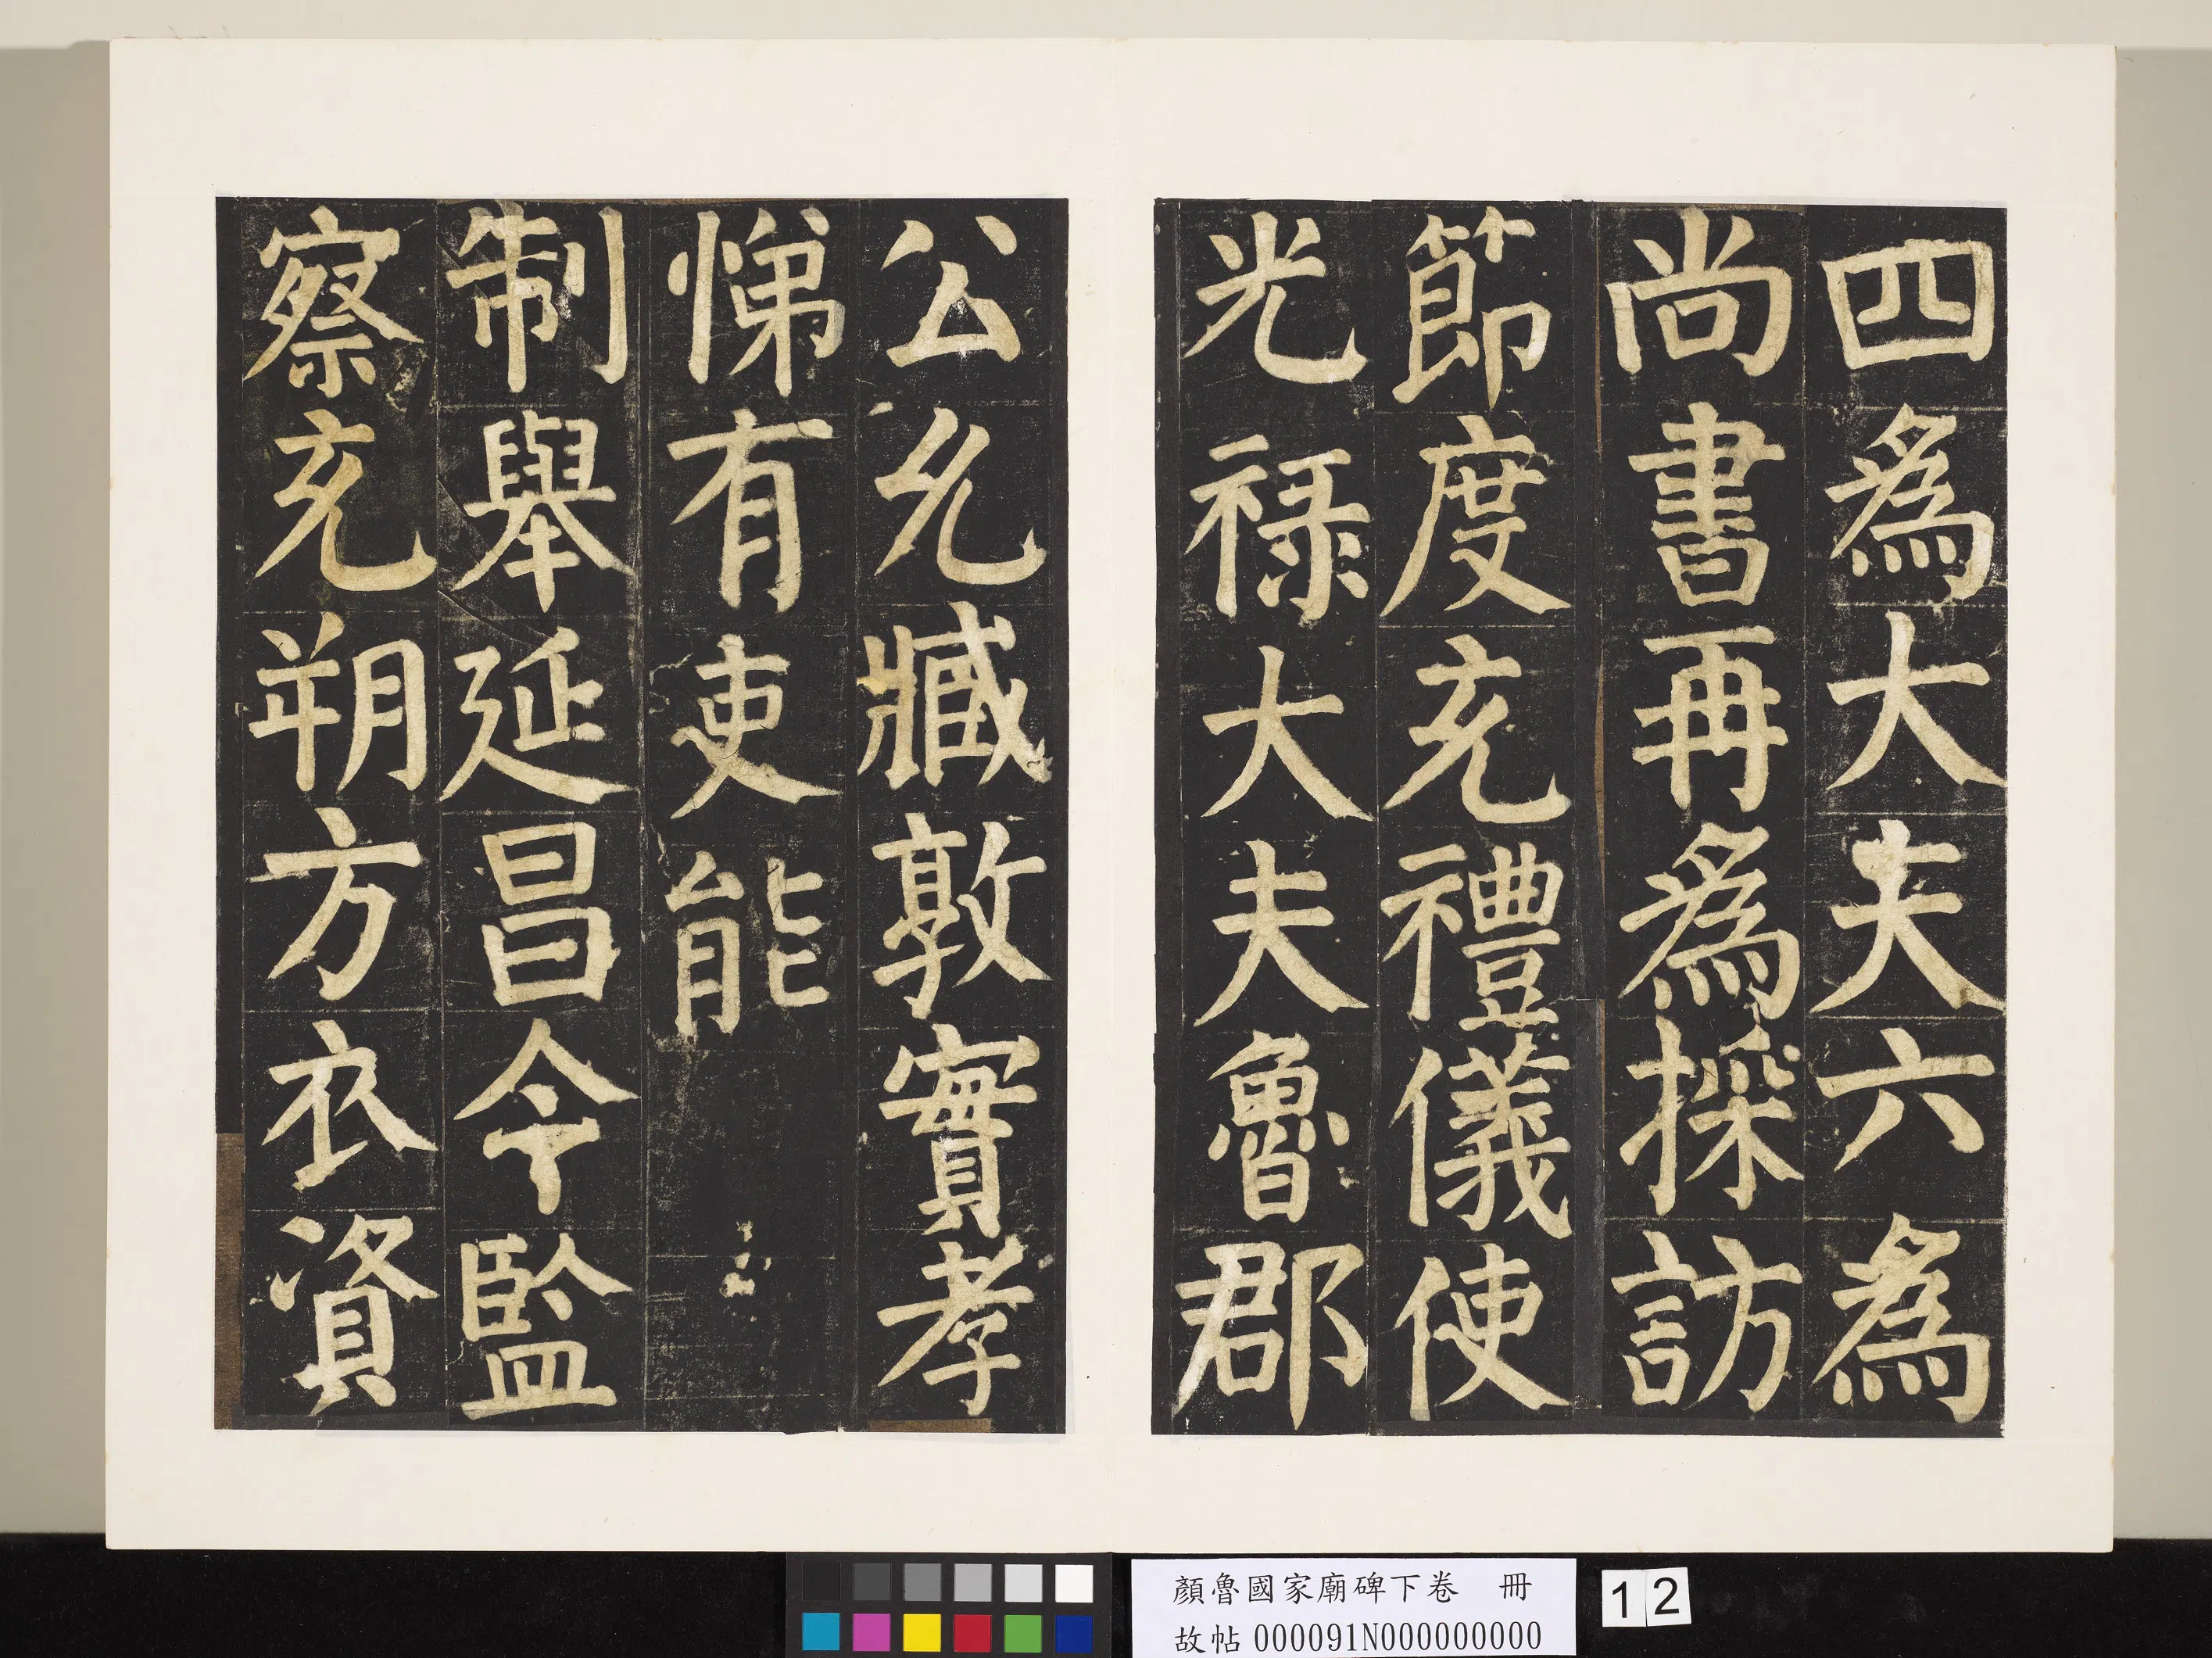 四為大夫六為
尚書再為採訪
節度充禮儀使
光祿大夫魯郡
公允臧敦實孝
悌有吏能
制舉延昌令監
察充朔方衣資
顏魯國家廟碑下卷 冊
故帖000091N000000000
12